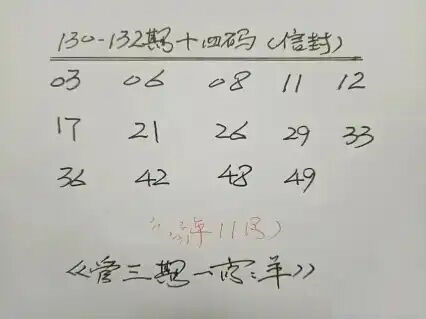 130-132期十四码(信封)
03 06 08 11 12
17 21 26 29 33
36 42 48 49
11日)
《管三期一肖:羊》